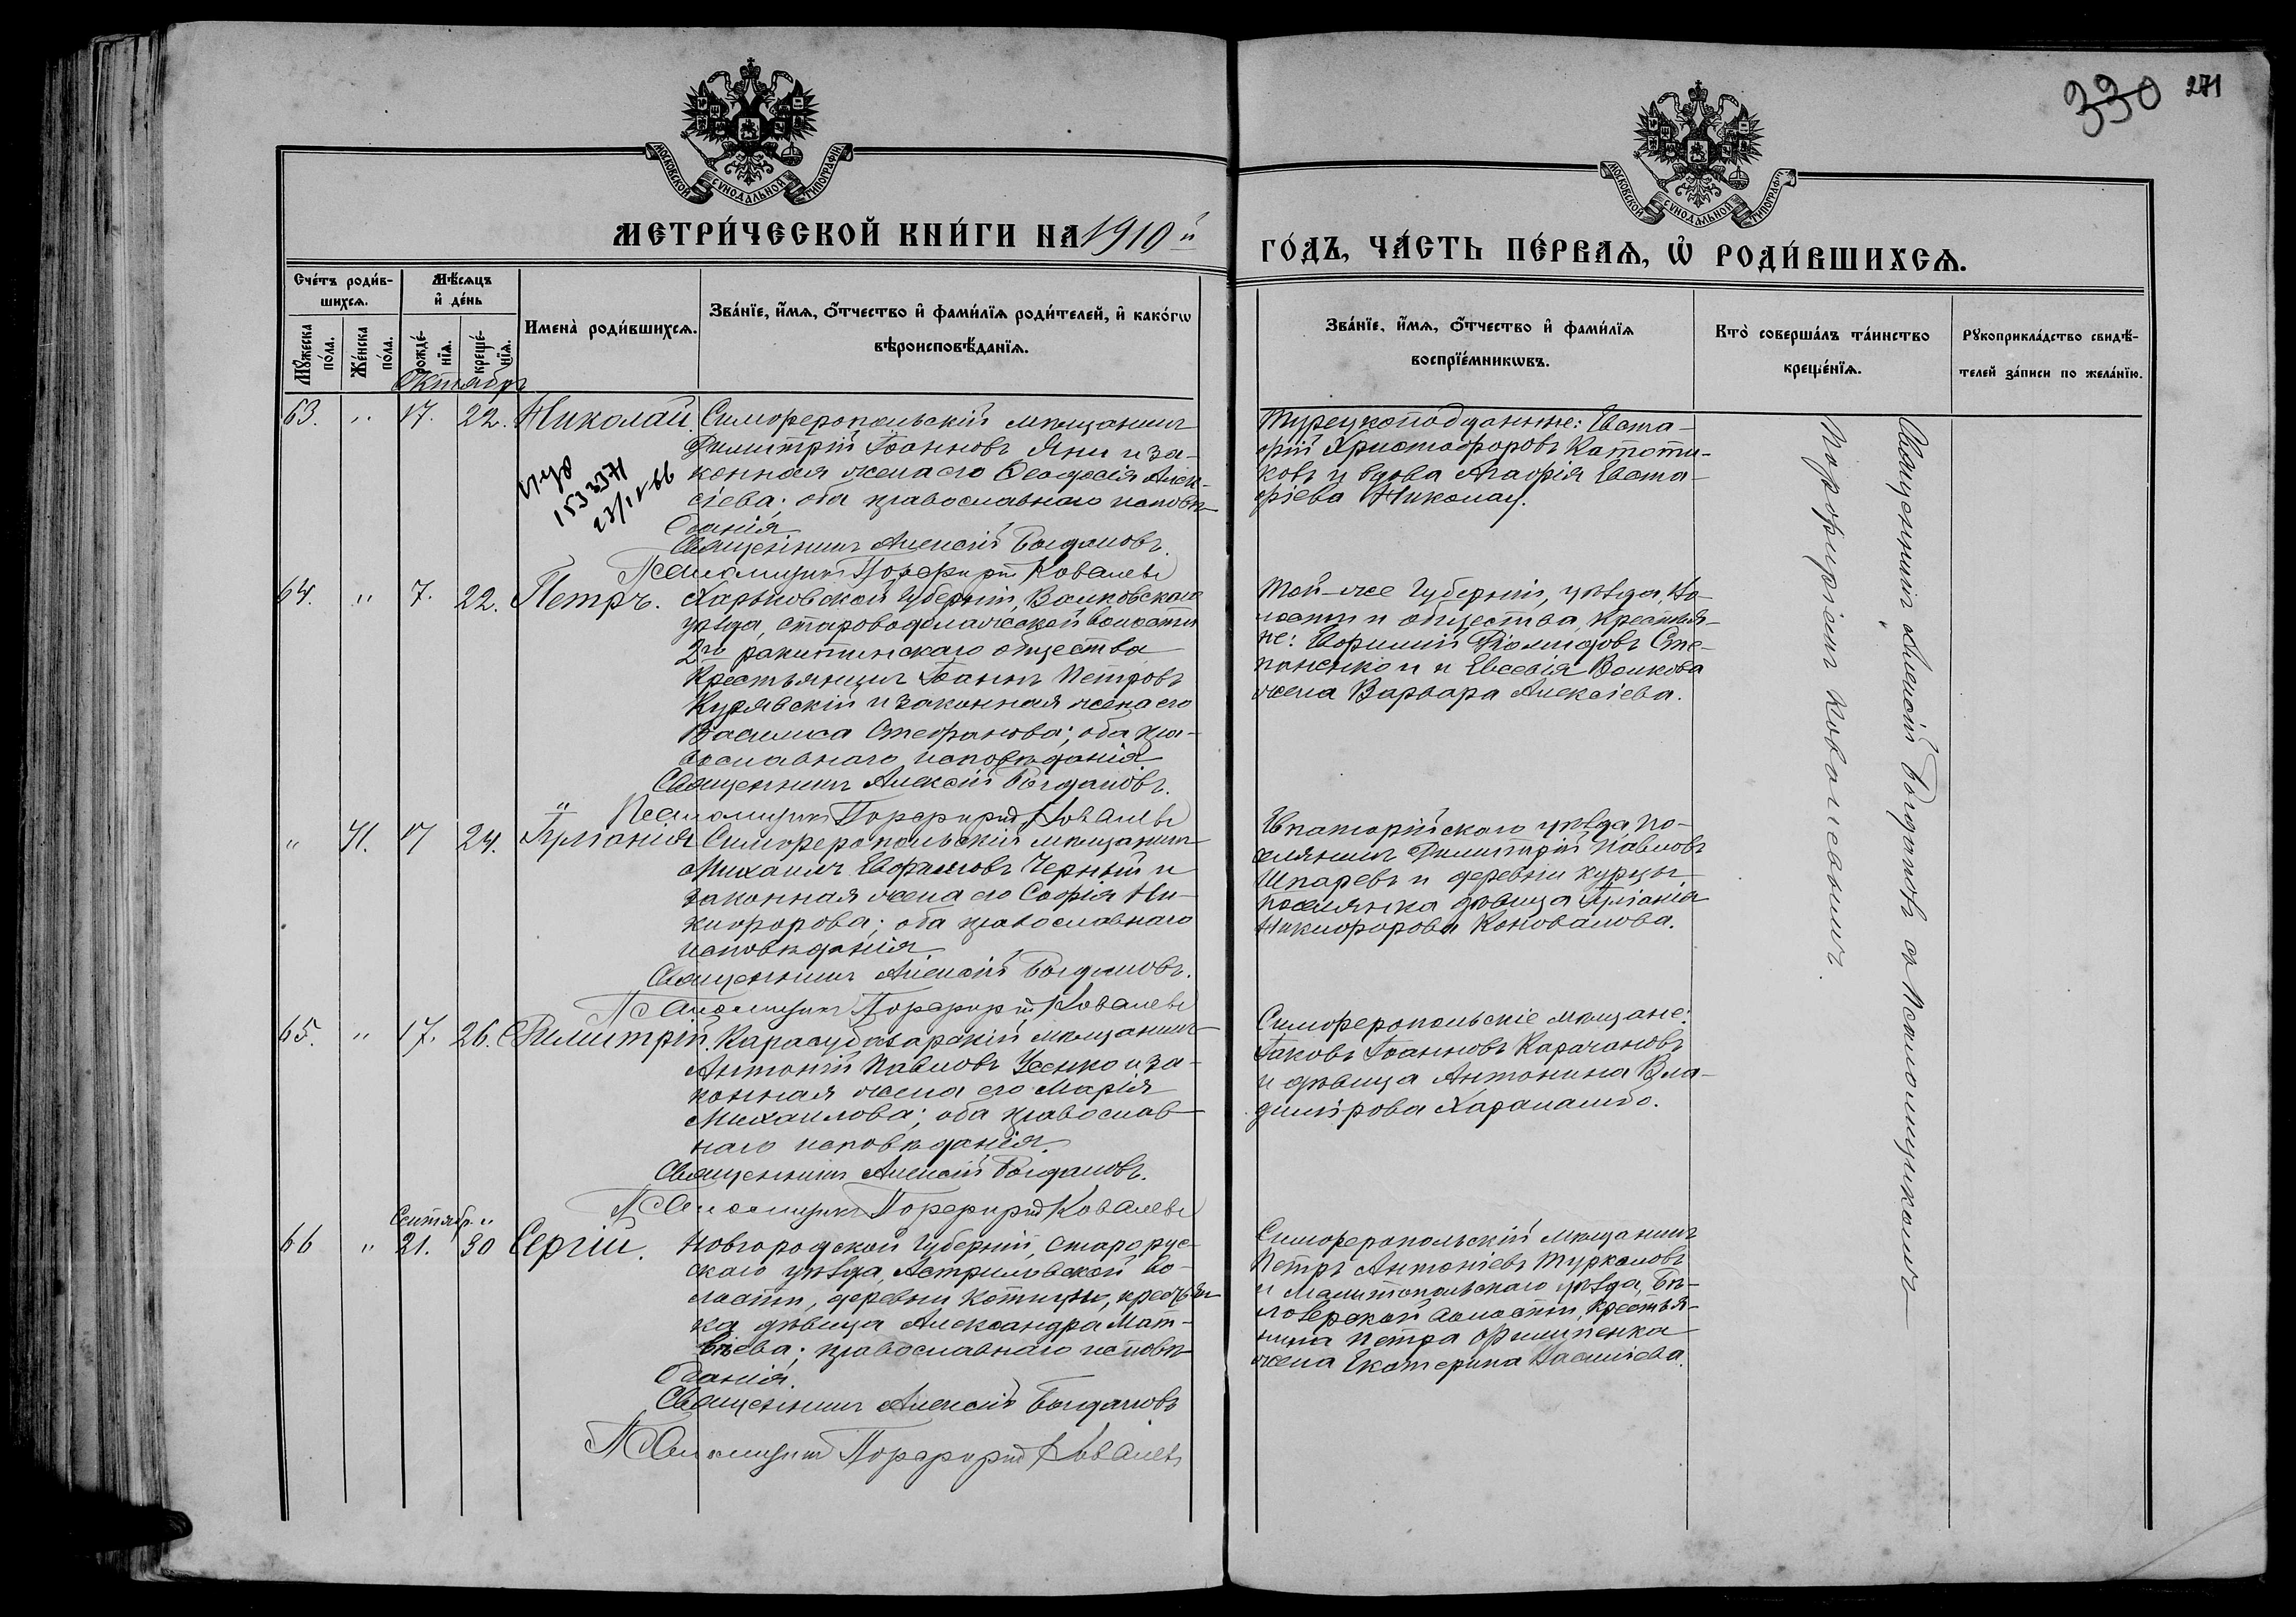 330 271
МОСКОВСКОЙ СѴНОДАЛЬНОЙ ТИПОГРАФІИ
МОСКОВСКОЙ СѴНОДАЛЬНОЙ ТИПОГРАФІИ
МЕТРИ́ЧЕСКОЙ КНИ́ГИ НА 1910й
ГО́ДЪ, ЧА́СТЬ ПЕ́РВАѦ, Ѽ РОДИ́ВШИХСѦ.
Сче́тъ роди́в-
шихсѧ.
Мꙋ́жеска по́ла.
Же́нска по́ла.
Мѣ́сѧцъ
и҆ де́нь
рожде́-
нїѧ.
креще́-
нїѧ.
Имена̀ роди́вшихсѧ.
Зва́нїе, и҆́мѧ, ѻ҆́тчество и҆ фами́лїѧ роди́телей, и҆ како́гѡ
вѣроисповѣ́данїѧ.
Зва́нїе, и҆́мѧ, ѻ҆́тчество и҆ фами́лїѧ
воспрїе́мникѡвъ.
Кто̀ соверша́лъ та́инство
креще́нїѧ.
Рꙋкоприкла́дство свидѣ́-
телей за́писи по жела́нїю.
Октября
63. " 17. 22. Николай. Симферопольскій мѣщанинъ
Димитрій Іоанновъ Яни и за-
конная жена его Ѳеодосія Алек-
сіева; оба православнаго исповѣ-
данія
Священникъ Алексій Богдановъ.
Псаломщикъ Порфирій Ковалевъ
1533371
23/IX 66
Турецкоподданные: Евста-
фій Христофоровъ Катоти-
ковъ и вдова Агафія Евста-
фіева Николау.
64. " 7. 22. Петръ. Харьковской губерніи, Валковскаго
уѣзда, староводолажской волости
2го ракитинскаго общества
крестьянинъ Іоаннъ Петровъ
Курявскій и законная жена его
Василиса Стефанова; оба пра-
вославнаго исповѣданія
Священникъ Алексій Богдановъ.
Псаломщикъ Порфирій Ковалевъ
Той-же губерніи, уѣзда, во-
лости и общества, крестья-
не: Ефимій Діомидовъ Сте-
паненко и Евсевія Волкова
жена Варвара Алексіева.
" 41. 17 24. Іуліанія Симферопольскій мѣщанинъ
Михаилъ Ефимовъ Черный и
законная жена его Софія Ни-
кифорова; оба православнаго
исповѣданія
Священникъ Алексій Богдановъ.
Псаломщикъ Порфирій Ковалевъ
Евпаторійскаго уѣзда по-
селянинъ Димитрій Павловъ
Шпаревъ и деревни Курцы
поселянка дѣвица Іуліанія
Никифорова Коновалова.
65. " 17. 26. Димитрій. Карасубазарскій мѣщанинъ
Антоній Павловъ Усенко и за-
конная жена его Марія
Михаилова; оба православ-
наго исповѣданія.
Священникъ Алексій Богдановъ.
Псаломщикъ Порфирій Ковалевъ
Симферопольскіе мѣщане:
Іаковъ Іоанновъ Карачановъ
и дѣвица Антонина Вла-
димірова Харалампо.
Сентябр. "
66 " 21. 30 Сергій. Новгородской губерніи, старорус-
скаго уѣзда, Астриловской во-
лости, деревни Котицы, крестьян-
ка дѣвица Александра Мат-
вѣева; православнаго исповѣ-
данія.
Священникъ Алексій Богдановъ
Псаломщикъ Порфирій Ковалевъ
Симферопольскій мѣщанинъ
Петръ Антоніевъ Туркаловъ
и Мелитопольскаго уѣзда, Бѣ-
лозерской волости, крестья-
нина Петра Филипенка
жена Екатерина Василіева.
Священникъ Алексій Богдановъ съ псаломщикомъ
Порфиріемъ Ковалевымъ.